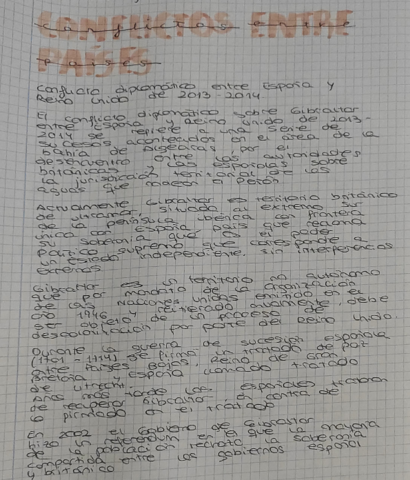 CONFLICTOS ENTRE
PAÍSES
Conflicto diplomático entre España y
Reino Unido de 2013-2014.
El conflicto diplomático sobre Gibraltar
entre España y Reino Unido de 2013-
2014 se refiere a una serie de
sucesos acontecidos en el área de la
Bahía de Algeciras, por el
desencuentro entre las autoridades
británicas y las españolas sobre
la jurisdicción territorial de las
aguas que rodean el Peñón
Actualmente Gibraltar es territorio británico
de ultramar, situado al extremo sur
de la península ibérica con frontera
única con España país que reclama
su soberanía que es el poder
político supremo que corresponde a
un estado independiente, sin interferencias
externas
Gibraltar es un territorio no autónomo
que por mandato de la organización
de las Naciones Unidas emitido en el
año 1946 y reiterado anualmente, debe
ser objeto de un proceso de
descolonización por parte del Reino Unido
Durante la guerra de sucesión española
(1701-1714) se firmó un tratado de paz
entre Países Bajos, Reino de Gran
Bretaña y España llamado tratado
de Utrecht.
Años más tarde los españoles trataron
de recuperar Gibraltar en contra de
lo firmado en el tratado
En 2002 el Gobierno de Gibraltar
hizo un referendum en el que la mayoría
de la población rechazó la soberanía
compartida entre los gobiernos español
y británico